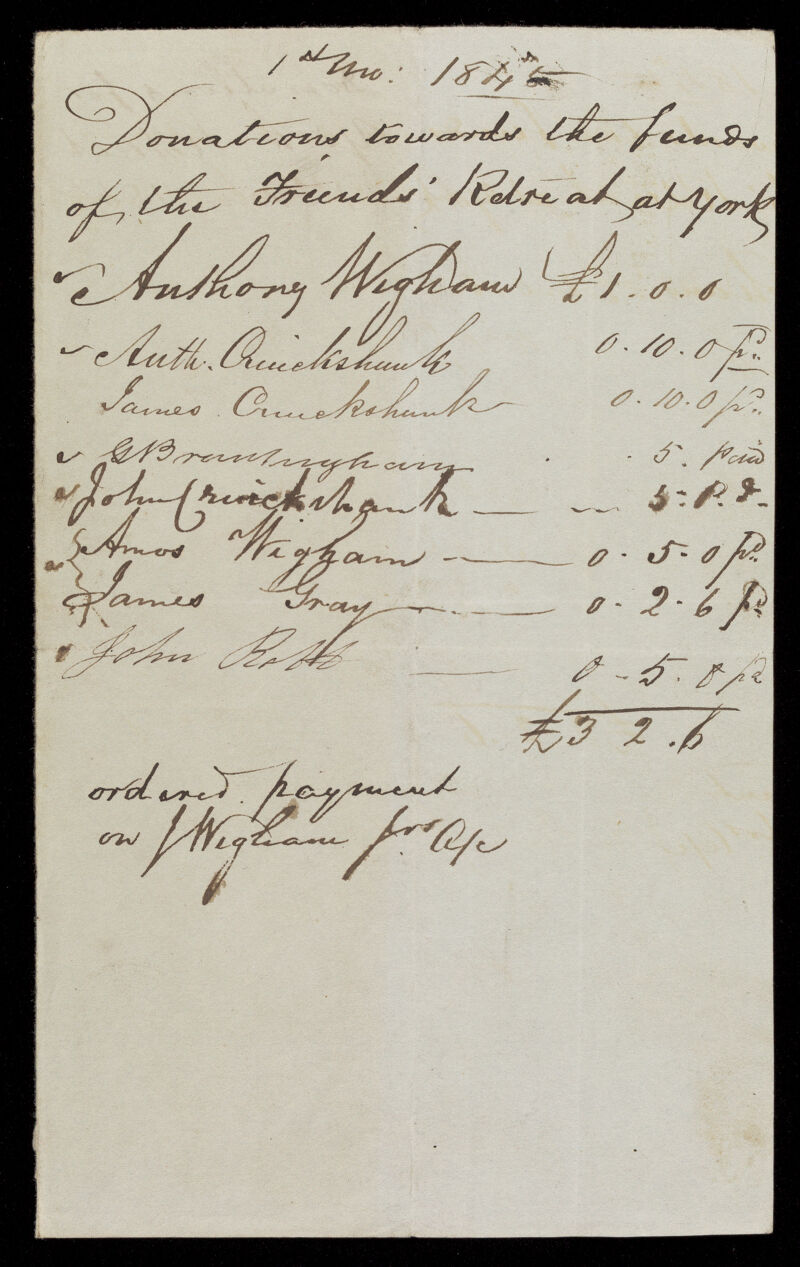 1st Mo: 1845
Donations towards the funds
of the Friends' Retreat at York
Anthony Wigham £1.0.0
Anth. Cruickshank 0.10.0 pd.
James Cruickshank 0.10.0 pd.
G Brantingham 5. paid
John Cruickshank — 5. P.d.
Amos Wigham — 0.5.0 pd.
James Gray — 0.2.6 pd.
John — 0-5.0 pd
£3 2.6
ordered payment
on J Wigham Jrs A/c